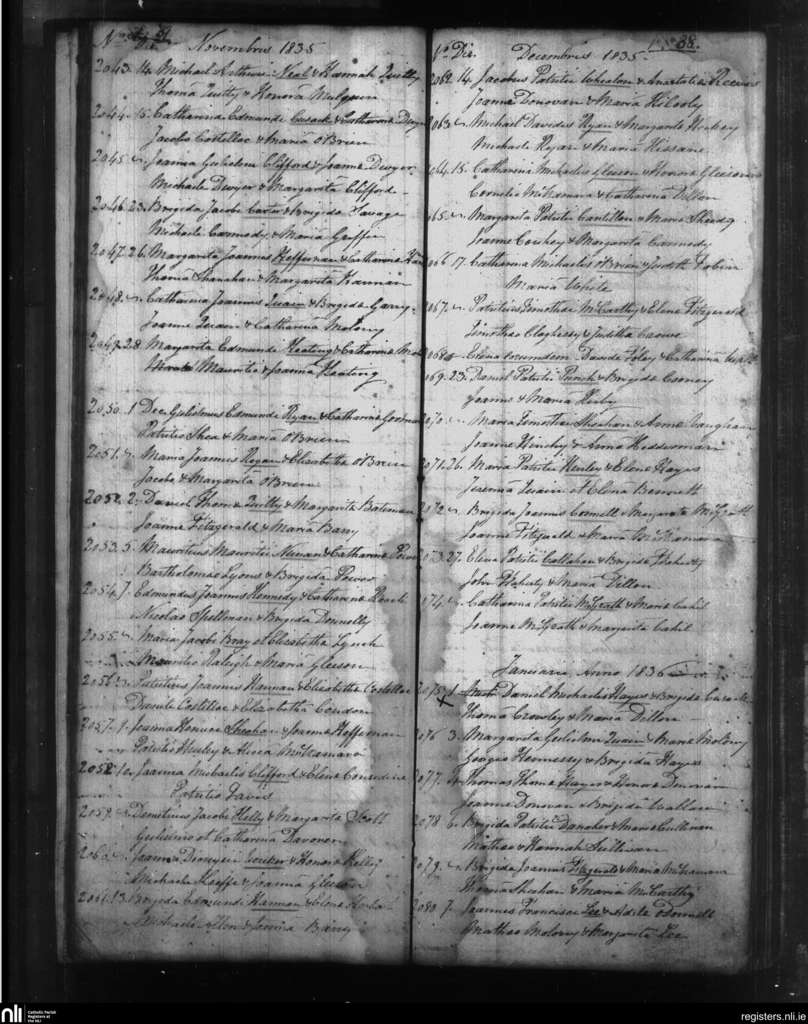 Novembris 1835
2043. 14. Michael Arthuri Neal & Hannah Quilty
Thoma Quilty & Honora Mulqueen
2044. 15. Catharina Edmundi Cusack & Catharina Dwyer
Jacobo Costelloe & Maria O'Brien
2045. Joanna Gulielmi Clifford & Joanna Dwyer
Michaele Dwyer & Margarita Clifford
2046. 23. Brigida Jacobi Carter & Brigida Savage
Michaele Carmody & Maria Griffin
2047. 26. Margarita Joannes Heffernan & Catharina
Thoma Shanahan & Margarita Hannan
2048. Catharina Joannes Quain & Brigida Garry
Joanne Quain & Catharina Molony
2049. 28. Margarita Edmundi Keating & Catharina
Mauritio & Joanna Keating
2050. 1 Dec. Gulielmus Edmundi Ryan & Catharina
Patritio Shea & Maria O'Brien
2051. Maria Joannes Regan & Elisabetha O'Brien
Jacobo & Margarita O'Brien
2052. 2. Daniel Thoma Quilty & Margarita Bateman
Joanne Fitzgerald & Maria Barry
2053. 5. Mauritius Mauritii Nunan & Catharina Power
Bartholomeo Lyons & Brigida Power
2054. 7. Edmundus Joannes Kennedy & Catharina Roach
Nicolao Spellman & Brigida Donnelly
2055. Maria Jacobi Bray et Elisabetha Lynch
Mauritio Raleigh & Maria Gleeson
2056. Patritius Joannes Hannan & Elisabetha Costelloe
Daniele Costelloe & Elizabetha Condon
2057. 9. Joanna Sheehan & Joanna Heffernan
Patritio Hurley & Alicia McNamara
2058. 10. Joanna Michaelis Clifford & Elena Considine
Patritio Davis
2059. Demetrius Jacobi Kelly & Margarita Scott
Gulielmo et Catharina Davoren
2060. Joanna Dionysii & Honora Kelly
Michaele Keeffe & Joanna Gleeson
2061. 13. Brigida Edmundi Hannan & Elena
Michaele & Barry
88.
Dec. Decembris 1835
2062 14. Jacobus Patritii Whealan & Anastatia
Joanne Donovan & Maria Kilooly
2063 Michael Davidis Ryan & Margarita Hickey
Michaele Ryan & Maria Kissane
2064. 15. Catharina Michaelis Gleeson & Honora
Cornelio McNamara & Catharina Dillon
2065. Margarita Patritii Cantillon & Maria Sheedy
Joanne Couhey & Margarita Carmody
2066 17. Catharina Michaelis O'Brien & Judith Tobin
Maria White
2067. Patritius Timothei McCarthy & Elena Fitzgerald
Timotheo Claghessy & Juditha Crowe
2068 Elena Davide Foley & Catharina
2069. 23. Daniel Patritii Punch & Brigida Cooney
Joanne & Maria Kirby
2070. Maria Timothei Sheehan & Anna Vaughan
Joanne Hinchy & Anna Hedderman
2071. 26. Maria Patritii Hurley & Elena Hayes
Jeremia Quain et Elena Bennett
2072 Brigida Joannes Connell & Margarita McGrath
Joanne Fitzgerald & Maria McNamara
2073 27. Elena Patritii Callahan & Brigida Flaherty
John Flaherty & Maria Dillon
2074. Catharina Patritii McGrath & Maria Cahil
Joanne McGrath & Margarita Cahil
Januarii Anno 1836
2075. 1. Daniel Michaelis Hayes & Brigida Cusack
X
Thoma Crowley & Maria Dillon
2076 3. Margarita Gulielmi Quain & Maria Molony
Georgio Hennessy & Brigida Hayes
2077. Thomas Thoma Hayes & Honora Donovan
Joanne Donovan & Brigida Wallace
2078 6. Brigida Patritii Danaher & Maria Cullinan
Matheo & Hannah Sullivan
2079. Brigida Joannes Fitzgerald & Maria McNamara
Thoma Sheehan & Maria McCarthy
2080 7. Joannes Francisci Lee & Adele Donnell
Matheo Molony & Margarita Lee
nli
Catholic Parish
Registers at
the NLI
registers.nli.ie